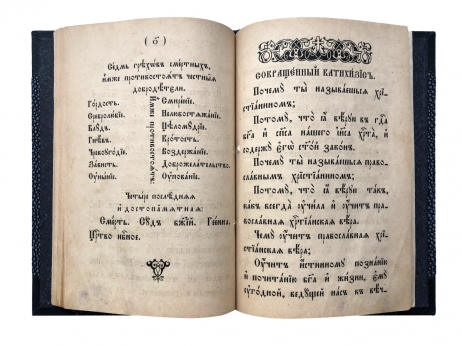 ( ѕ҃ )
Седмь грѣхѡвъ смертныхъ,
имже противостоѧтъ честныѧ
добродѣтели.
Гордость. Смиренїе.
Сребролюбїе. Нелюбостѧжанїе.
Блꙋдъ. Цѣломꙋдрїе.
Гнѣвъ. Кротость.
Чревоꙋгодїе. Воздержанїе.
Зависть. Доброжелательство.
Оунынїе. Оупованїе.
Имже противостоѧтъ:
Четыре послѣднѧѧ
и достопамѧтнаѧ:
Смерть. Сꙋдъ бж҃їй. Геенна.
Црⷭ҇тво нбⷭ҇ное.
СОКРАЩЕННЫЙ КАТИХИЗІСЪ.
Почемꙋ ты̀ называешьсѧ хрі-
стїаниномъ;
Потомꙋ, что̀ ѧ҆̀ вѣ́рꙋю въ гдⷭ҇а
бг҃а и сп҃са нашего іи҃са хрⷭ҇та̀, и
содержꙋ̀ є҆гѡ̀ ст҃ой законъ.
Почемꙋ ты̀ называешьсѧ право-
славнымъ хрістїаниномъ;
Потомꙋ, что̀ ѧ҆̀ вѣ́рꙋю такъ,
какъ всегда̀ оучила и оучитъ пра-
вославнаѧ хрⷭ҇тїанска вѣра;
Чемꙋ оучитъ православнаѧ хрі-
стїанска вѣра;
Оучитъ истинномꙋ познанїю
и почитанїю бг҃а и жизни, ємꙋ
ꙋгодной, ведꙋщей насъ къ вѣч-